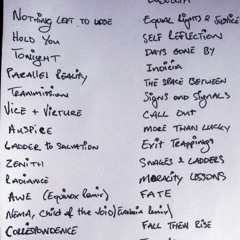 Nothing Left to Lose
Hold You
Tonight
Parallel Reality
Tranmission
Vice + Virture
Auspire
Ladder to Salvation
Zenith
Radiance
Awe (Equinox Remix)
Nema, Child of the Void (Erisheia Remix)
Correspondence
Equal Rights & Justice
Self Reflection
Days Gone By
Indicia
The Space Between
Signs and Signals
Call Out
More Than Lucky
Exit Trappings
Snakes & Ladders
Morality Lessons
Fate
Fall Then Rise